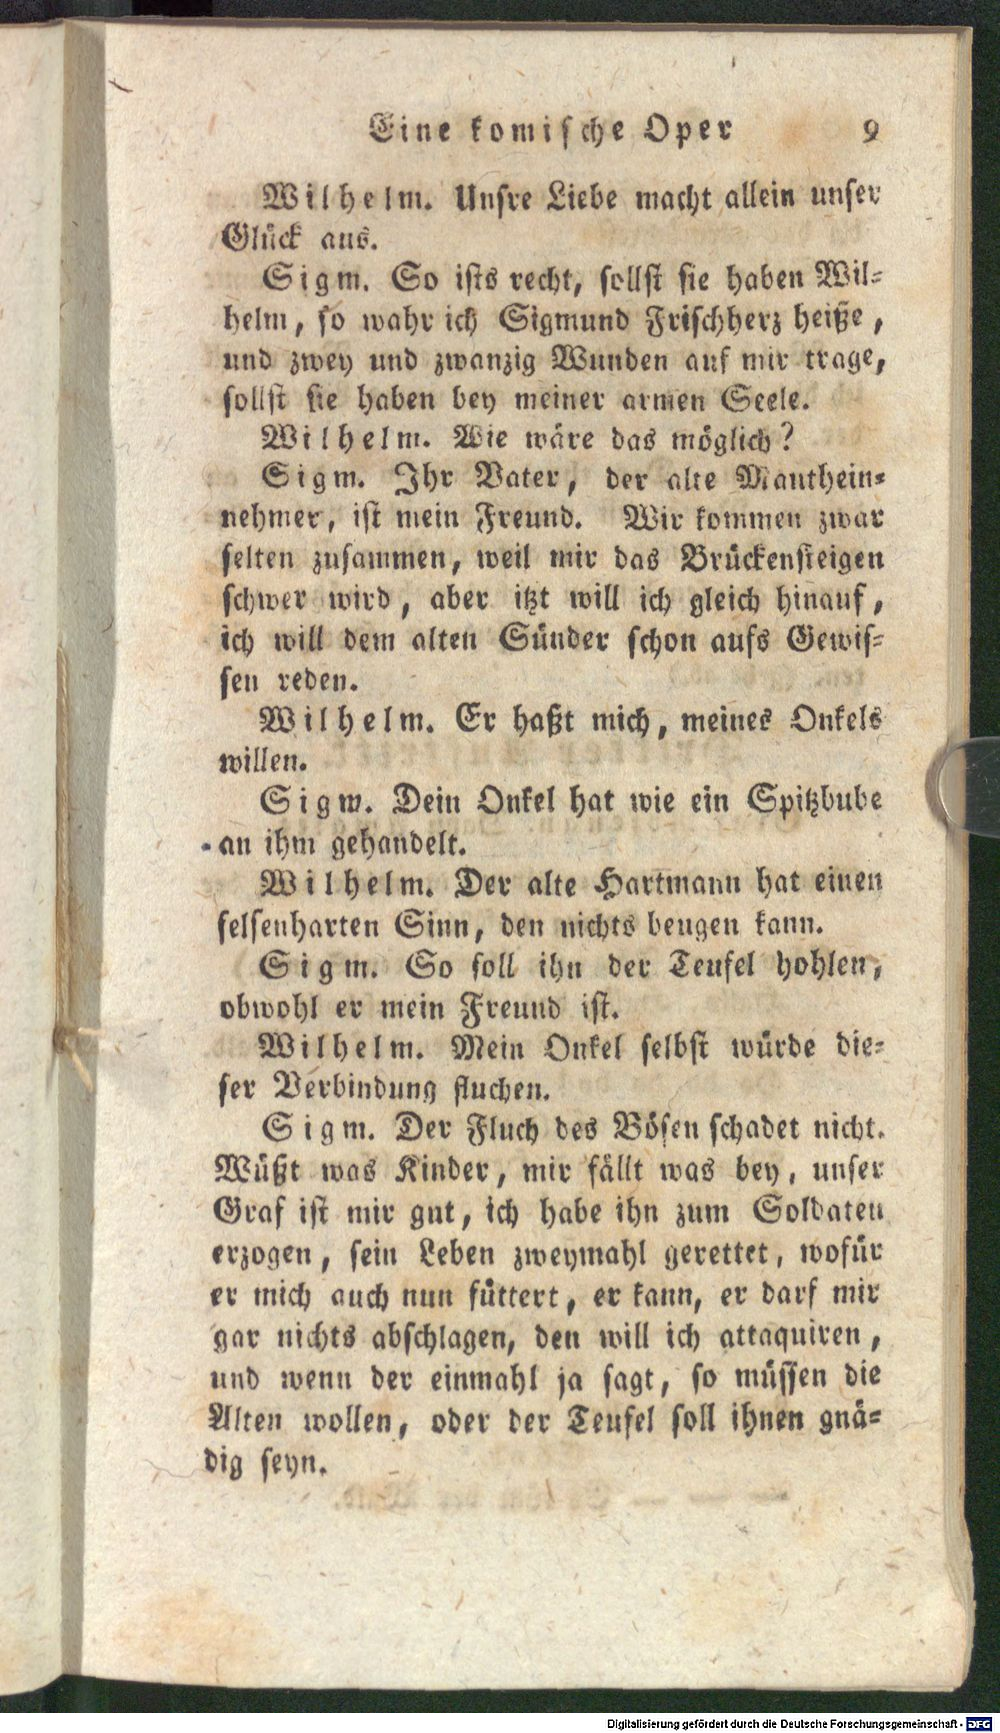 Eine komische Oper 9
Wilhelm. Unsre Liebe macht allein unser
Glück aus.
Sigm. So ists recht, sollst sie haben Wil-
helm, so wahr ich Sigmund Frischherz heiße,
und zwey und zwanzig Wunden auf mir trage,
sollst sie haben bey meiner armen Seele.
Wilhelm. Wie wäre das möglich?
Sigm. Ihr Vater, der alte Mauthein-
nehmer, ist mein Freund. Wir kommen zwar
selten zusammen, weil mir das Brückensteigen
schwer wird, aber itzt will ich gleich hinauf,
ich will dem alten Sünder schon aufs Gewis-
sen reden.
Wilhelm. Er haßt mich, meines Onkels
willen.
Sigw. Dein Onkel hat wie ein Spitzbube
an ihm gehandelt.
Wilhelm. Der alte Hartmann hat einen
felsenharten Sinn, den nichts beugen kann.
Sigm. So soll ihn der Teufel hohlen,
obwohl er mein Freund ist.
Wilhelm. Mein Onkel selbst würde die-
ser Verbindung fluchen.
Sigm. Der Fluch des Bösen schadet nicht.
Wüßt was Kinder, mir fällt was bey, unser
Graf ist mir gut, ich habe ihn zum Soldaten
erzogen, sein Leben zweymahl gerettet, wofür
er mich auch nun füttert, er kann, er darf mir
gar nichts abschlagen, den will ich attaquiren,
und wenn der einmahl ja sagt, so müssen die
Alten wollen, oder der Teufel soll ihnen gnä-
dig seyn.
Digitalisierung gefördert durch die Deutsche Forschungsgemeinschaft - DFG